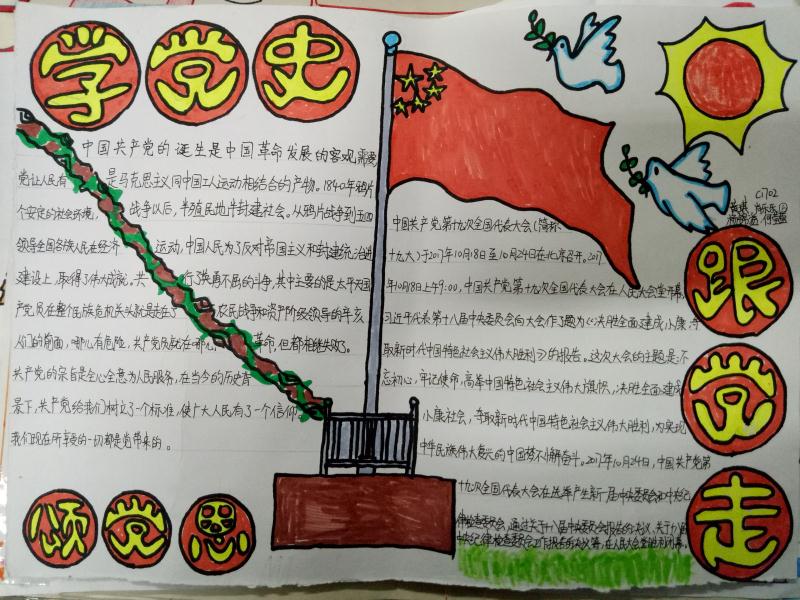 学党史
中国共产党的诞生是中国革命发展的客观需要
是马克思主义同中国工人运动相结合的产物。1840年鸦片
战争以后,半殖民地半封建社会。从鸦片战争到五四
运动,中国人民为了反对帝国主义和封建统治进
行了英勇不屈的斗争,其中主要的是太平天国
农民战争和资产阶级领导的辛亥
革命,但都相继失败了。
党让人民有
个安定的社会环境,
领导全国各族人民在经济
建设上,取得了伟大成就。共
产党员在整个民族危机关头就是走在了
人们的前面,哪儿有危险,共产党员就在哪儿
共产党的宗旨是全心全意为人民服务,在当今的历史背
景下,共产党给我们树立了一个标准,使广大人民有了一个信仰
我们现在所享受的一切都是党带来的。
颂党恩
C1702
中国共产党第十九次全国代表大会(简称
十九大)于2017年10月18日至10月24日在北京召开。2017
年10月18日上午9:00,中国共产党第十九次全国代表大会在人民大会堂开幕,
习近平代表第十八届中央委员会向大会作了题为《决胜全面建成小康,夺
取新时代中国特色社会主义伟大胜利》的报告。这次大会的主题是:不
忘初心,牢记使命,高举中国特色社会主义伟大旗帜,决胜全面建成
小康社会,夺取新时代中国特色社会主义伟大胜利,为实现
中华民族伟大复兴的中国梦不懈奋斗。2017年10月24日,中国共产党第
十九次全国代表大会在选举产生新一届中央委员会和中央纪
律检查委员会,通过关于十八届中央委员会报告的决议、关于十八届
中央纪律检查委员会工作报告的决议等,在人民大会堂胜利闭幕。
跟党走